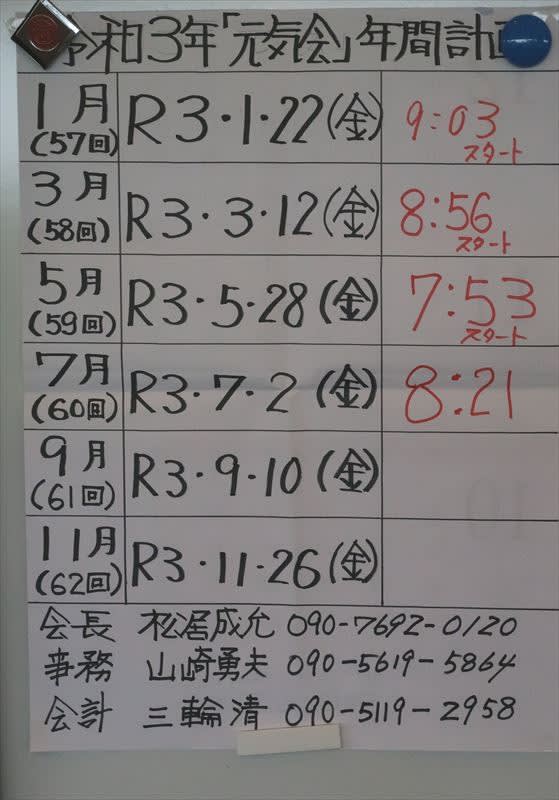 令和3年「元気会」年間計画
1月 R3・1・22(金) 9:03
(57回) スタート
3月 R3・3・12(金) 8:56
(58回) スタート
5月 R3・5・28(金) 7:53
(59回) スタート
7月 R3・7・2(金) 8:21
(60回)
9月 R3・9・10(金)
(61回)
11月 R3・11・26(金)
(62回)
会長 松居成允 090-7692-0120
事務 山崎勇夫 090-5619-5864
会計 三輪清 090-5119-2958